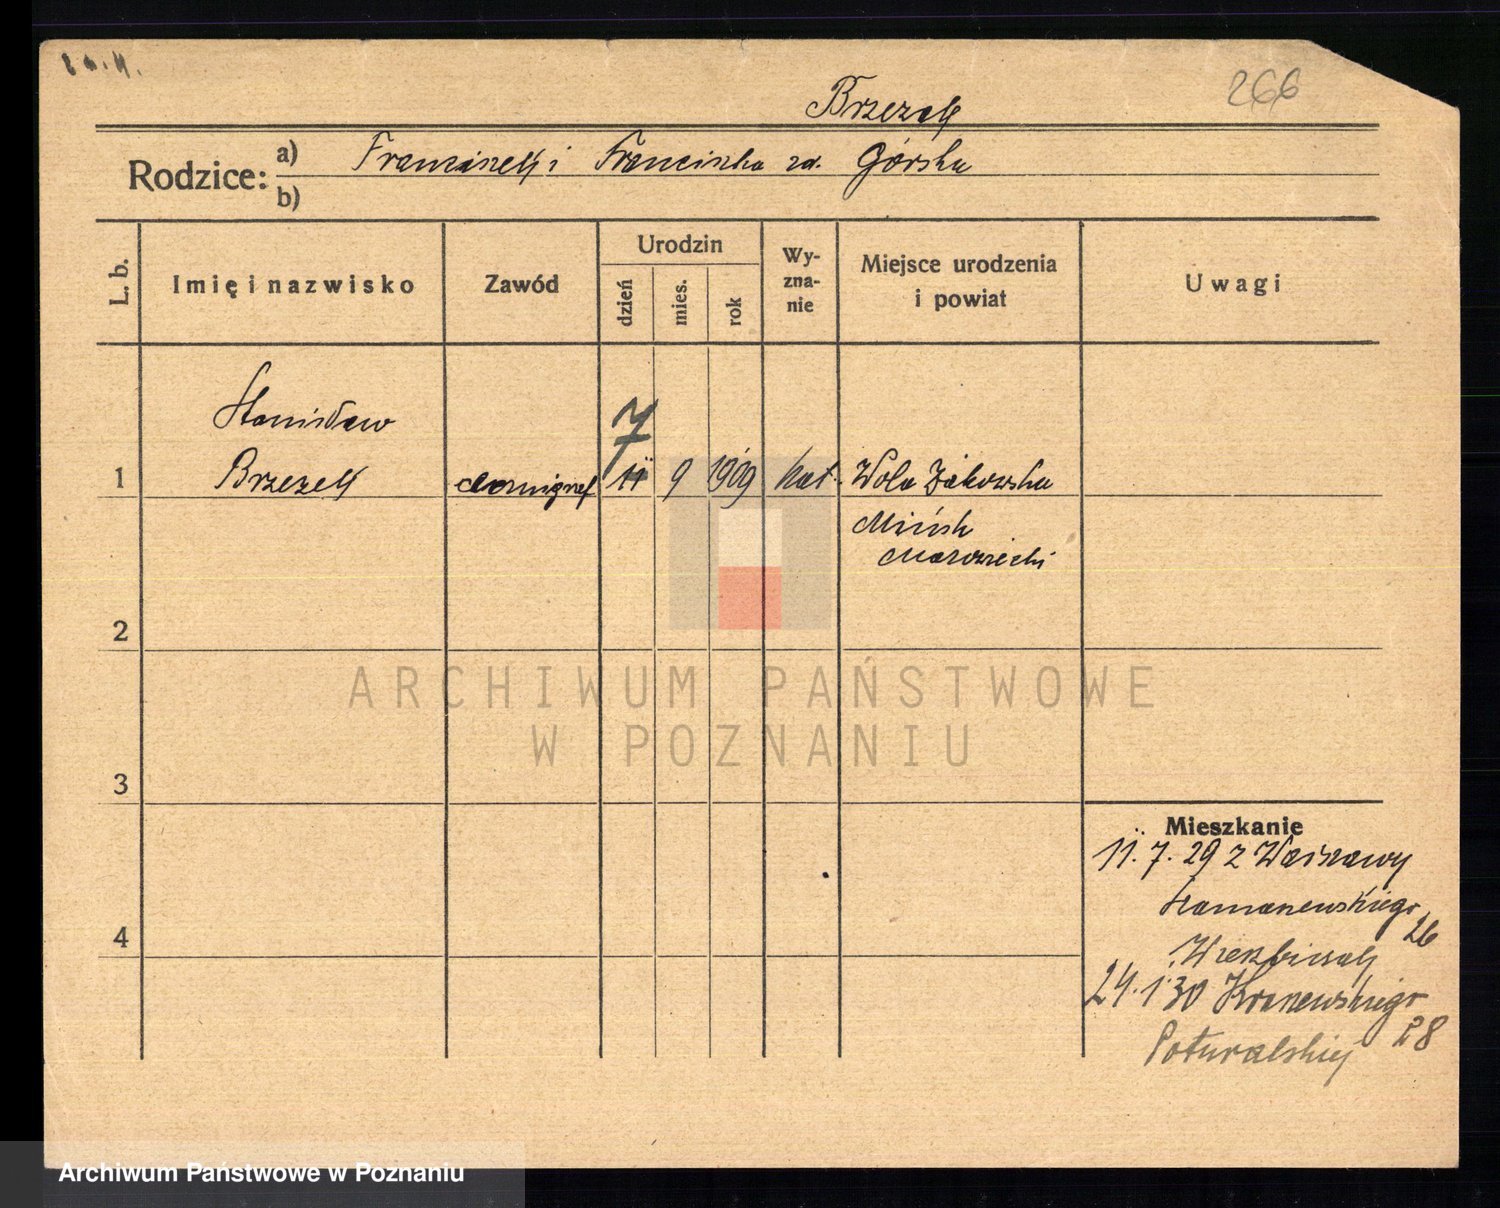 266
Brzezek
Rodzice: a) Franciszek i Franciszka zd. Górska
b)
L. b. Imię i nazwisko Zawód Urodzin dzień mies. rok Wy-zna-nie Miejsce urodzenia i powiat Uwagi
Stanisław
7
1 Brzezek 11 9 1909 kat. Wola
Mińsk
Mazowiecki
2
ARCHIWUM PAŃSTWOWE
W POZNANIU
3
Mieszkanie
11. 7. 29 z Warszawy
26
4
24. 1. 30
28
Archiwum Państwowe w Poznaniu